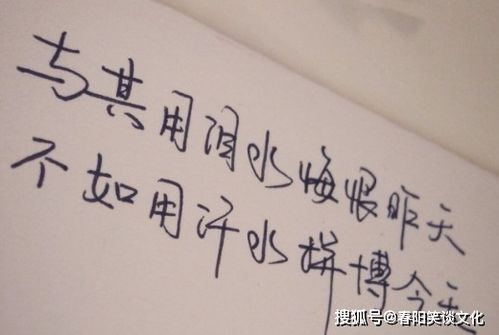 与其用泪水悔恨昨天
不如用汗水拼博今天
搜狐号@春阳笑谈文化